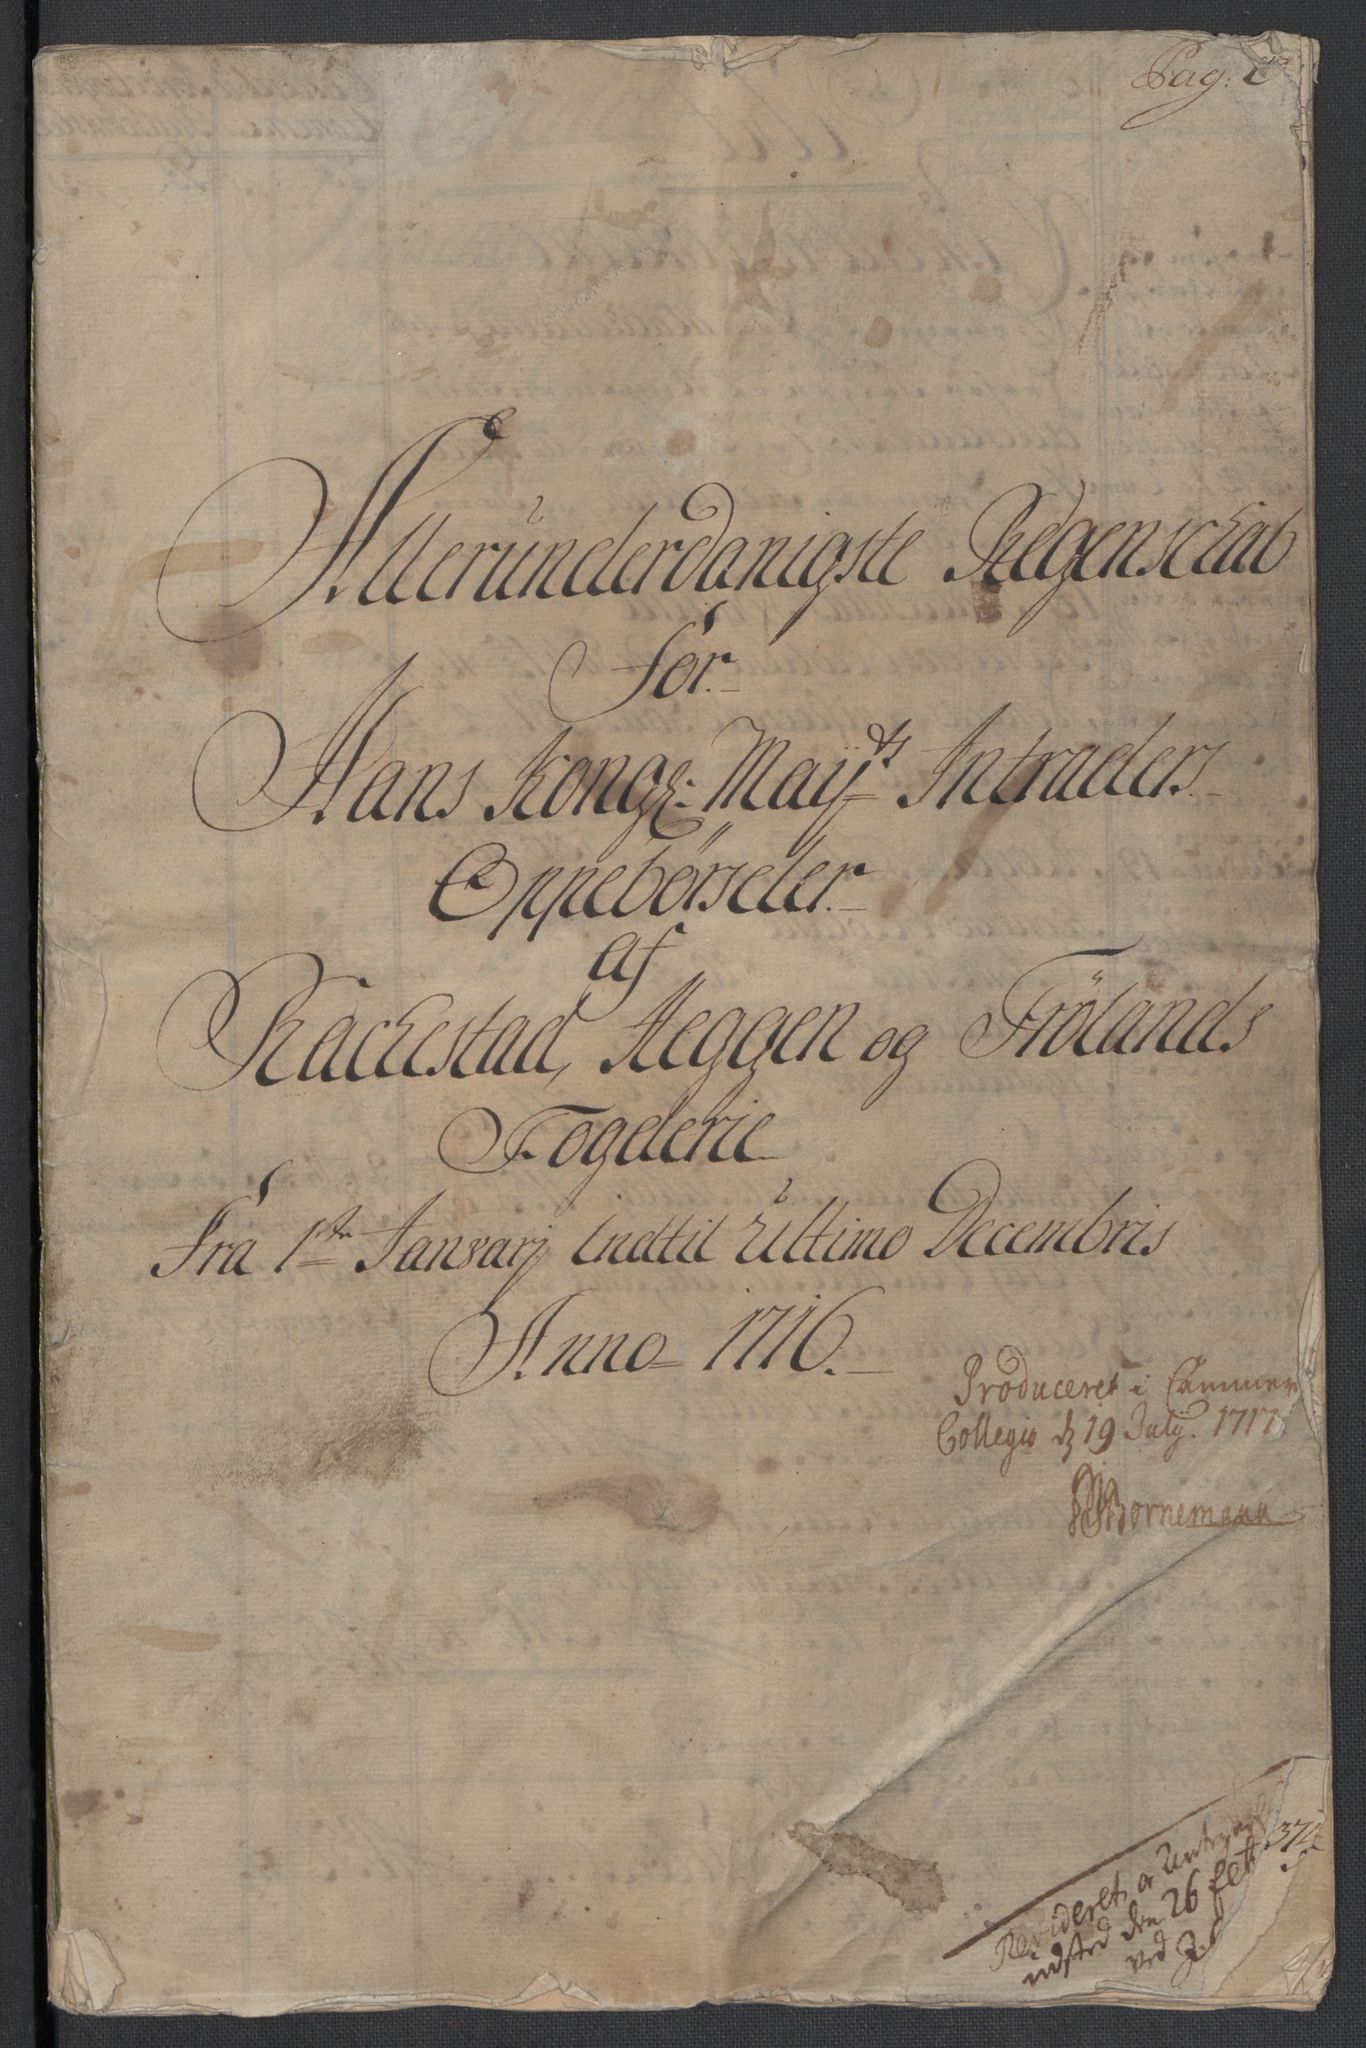 Pag: 1
Alleründerdanigste Regenschab
For
Hans Kongl: May:ts Intraders
Oppebörseler
af
Rackestad, Heggen og Frölands
Fogderie
Fra 1ste Janvarj indtil Ultimo Decembris
Anno 1716.
Produceret i Cammer
Collegio d 19 Julij. 1717
Bornemann
Revideret, og
udsted den 26 feb
ved
372